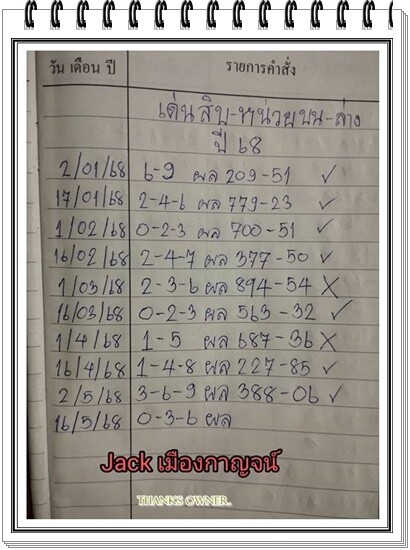 วัน เดือน ปี รายการคำสั่ง
เด่นสิบ-หน่วยบน-ล่าง
ปี 68
2/01/68 6-9 ผล 209-51 ✓
17/01/68 2-4-6 ผล 779-23 ✓
1/02/68 0-2-3 ผล 700-51 ✓
16/02/68 2-4-7 ผล 377-50 ✓
1/03/68 2-3-6 ผล 894-54 X
16/03/68 0-2-3 ผล 563-32 ✓
1/4/68 1-5 ผล 687-36 X
16/4/68 1-4-8 ผล 227-85 ✓
2/5/68 3-6-9 ผล 388-06 ✓
16/5/68 0-3-6 ผล
Jack เมืองกาญจน์
THANKS OWNER..